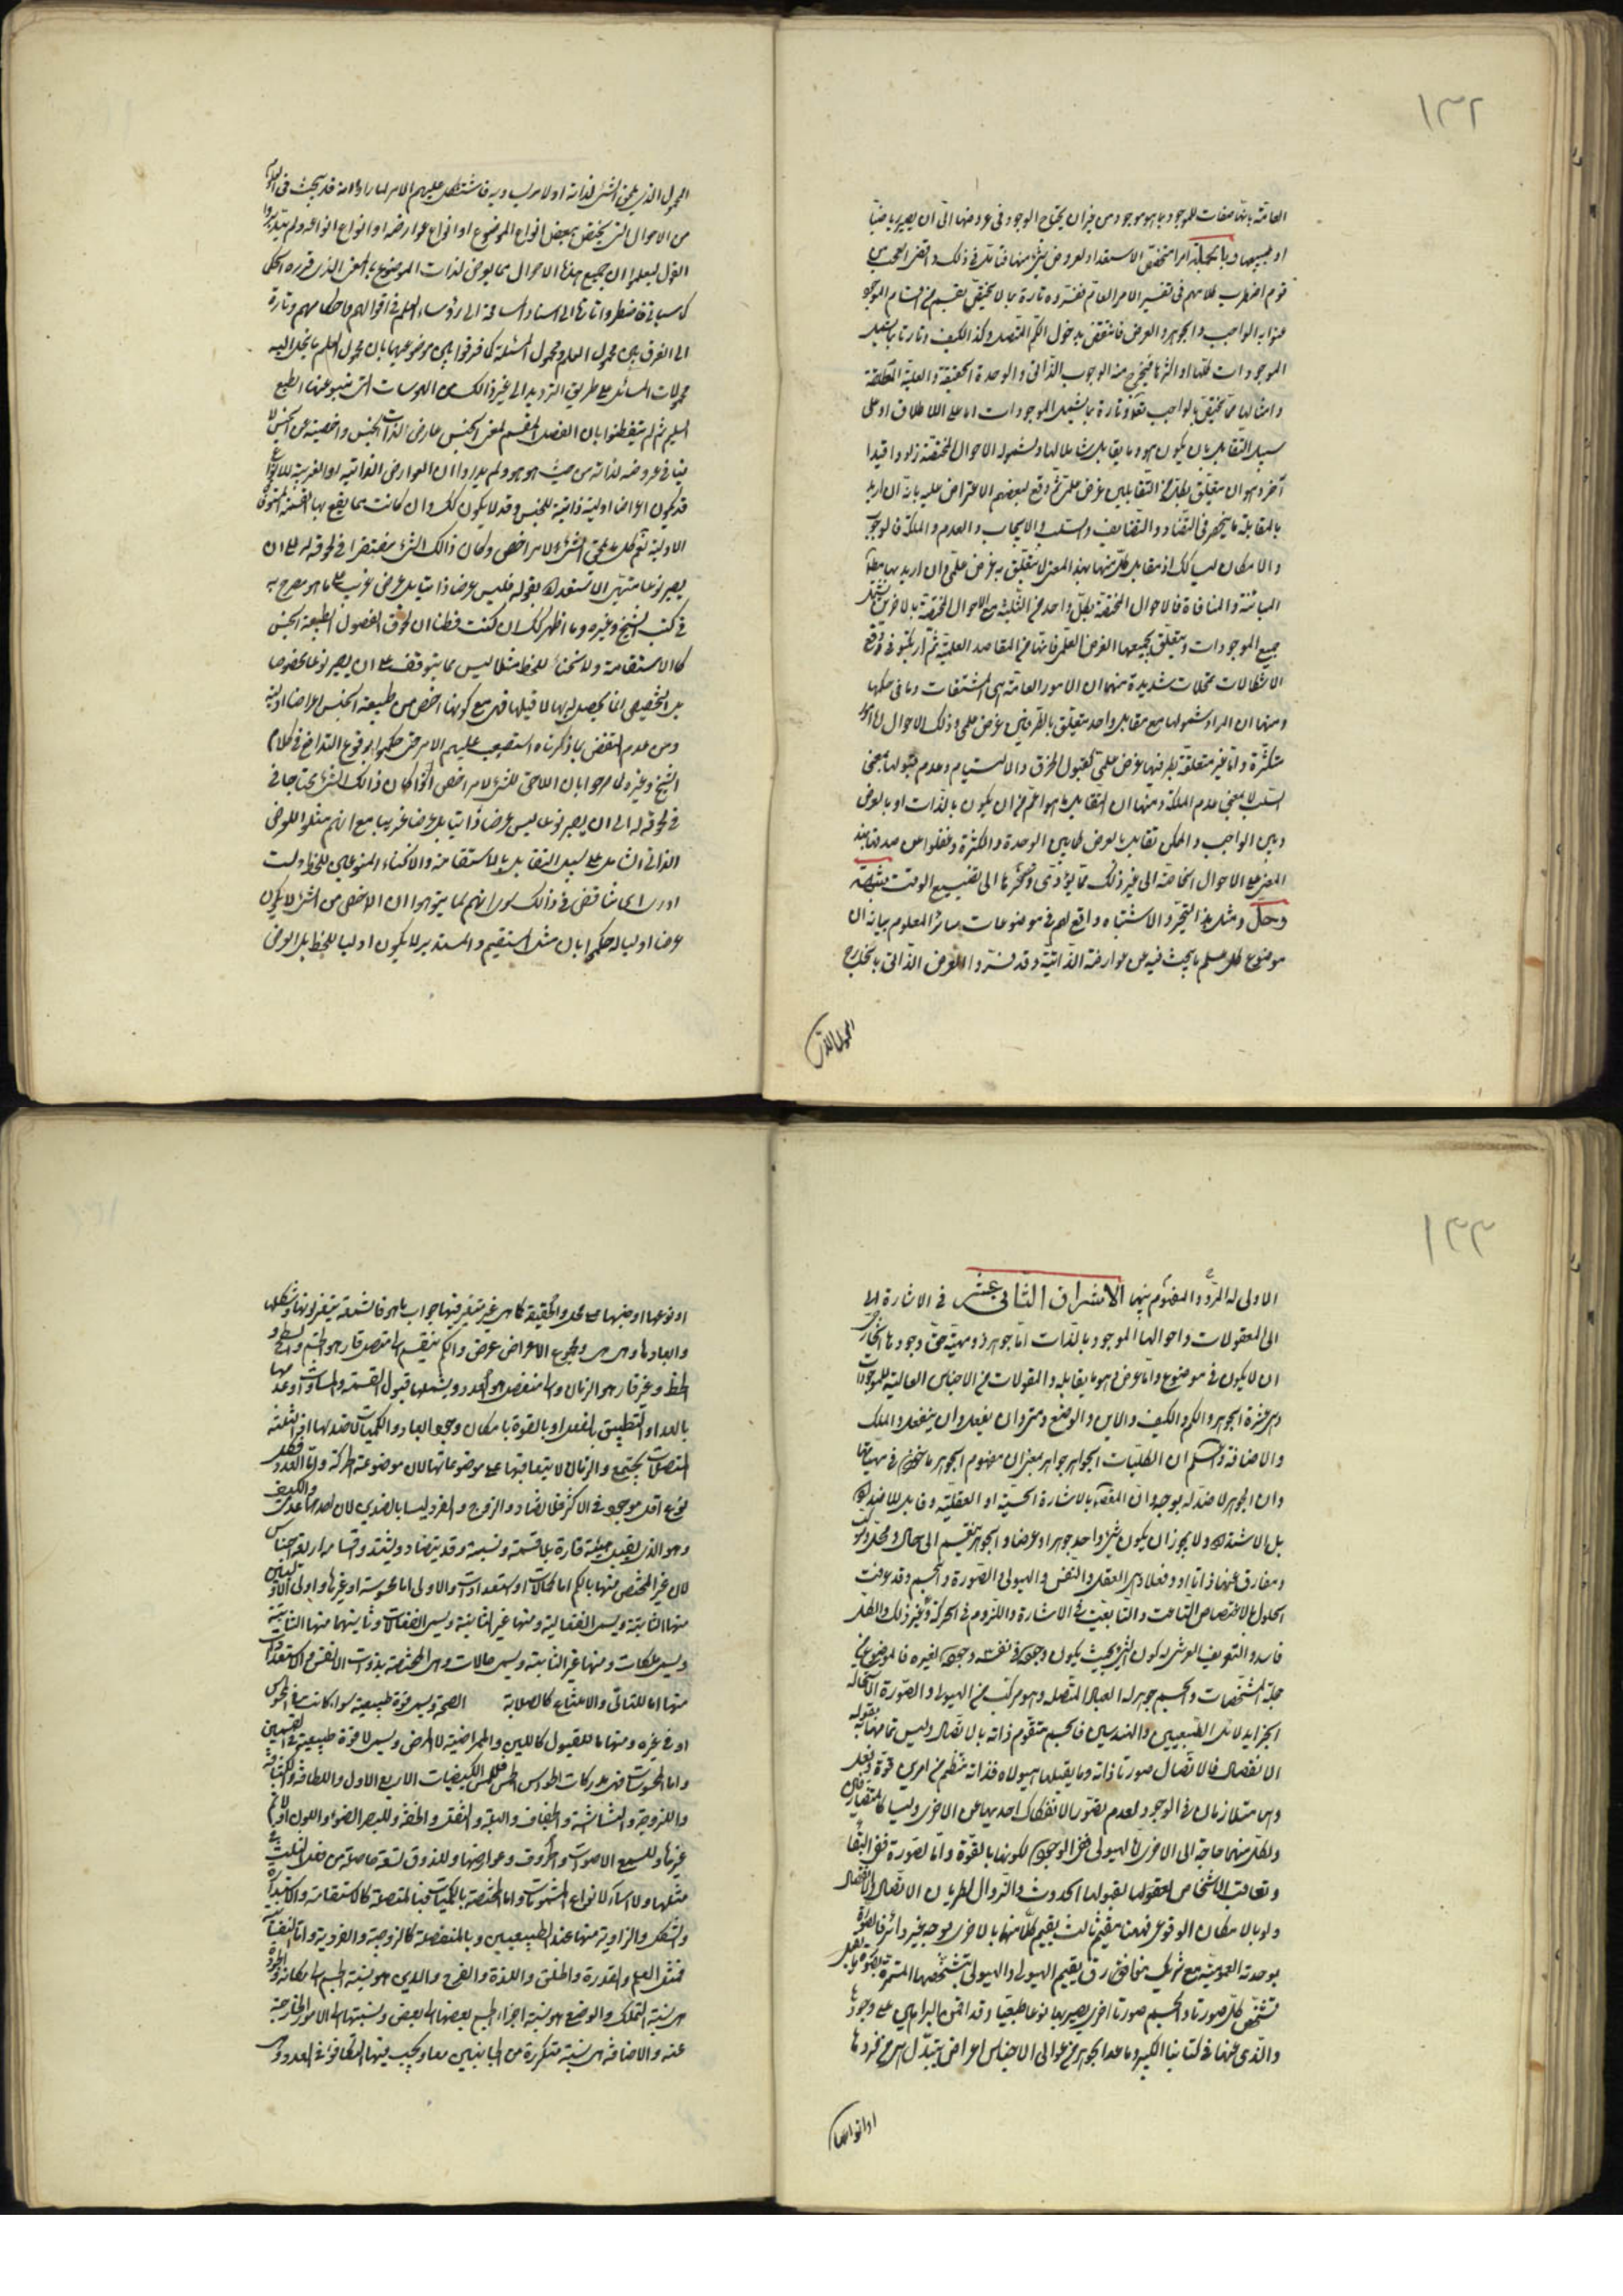 ١٣٢
العامة بانها صفات للموجود بما هو موجود من غير ان يحتاج الوجود فى عروضها الى ان يصير رياضيا
او طبيعيا وبالجملة امرا متخصص الاستعداد لعروض شئ منها فتامل فى ذلك واقض العجب من
قوم اضطرب كلامهم فى تفسير الامر العام ففسروه تارة بما لا يختص بقسم من اقسام الموجود
عنوا به الواجب والجوهر والعرض فانتقض بدخول الكم المتصل وكذا الكيف وتارة بما يشمل
الموجودات كلها او اكثرها فيخرج منه الوجوب الذاتى والوحدة الحقيقية والعلية المطلقة
وامثالها مما يختص بالواجب تعالى وتارة بما يشمل الموجودات اما على الاطلاق او على
سبيل التقابل بان يكون هو وما يقابله شاملا لها ولشموله الاحوال المختصة زادوا قيدا
آخر وهو ان يتعلق بكل من المتقابلين غرض علمى ثم وقع لبعضهم الاعتراض عليه بانه ان اريد
بالمقابلة ما ينحصر فى التضاد والتضايف والسلب والايجاب والعدم والملكة فالوجوب
والامكان ليسا كذلك اذ مقابل كل منهما بهذا المعنى لا يتعلق به غرض علمى وان اريد بها مطلق
المباينة والمنافاة فالاحوال المختصة بكل واحد من الثلثة مع الاحوال المختصة بالاخرين تشمل
جميع الموجودات ويتعلق بجميعها الغرض العلمى فانها من المقاصد العلمية ثم ارتكبوا فى دفع
الاشكالات تمحلات شديدة منها ان الامور العامة هى المشتقات وما فى حكمها
ومنها ان المراد شمولها مع مقابل واحد يتعلق بالطرفين غرض علمى وتلك الاحوال اما امور
متكثرة واما غير متعلقة بطرفيها غرض علمى كقبول الخرق والالتيام وعدم قبولها بمعنى
السلب لا بمعنى عدم الملكة ومنها ان التقابل ما هو اعم من ان يكون بالذات او بالعرض
وبين الواجب والممكن تقابل بالعرض كما بين الوحدة والكثرة وغفلوا عن صدقها بهذا
المعنى على الاحوال الخاصة الى غير ذلك مما يؤدى ذكرها الى تضييع الوقت
وحل ومثل هذا التحير والاشتباه واقع لهم فى موضوعات سائر العلوم بيانه ان
موضوع كل علم ما يبحث فيه عن عوارضه الذاتية وقد فسروا العرض الذاتى بالخارج
المحمول الذى
المحمول الذى يلحق الشئ لذاته او لامر يساويه فاشتكل عليهم الامر لما راوا انه قد يبحث فى العلوم
من الاحوال التى يختص ببعض انواع الموضوع او انواع عوارضه او انواع انواعه ولم يتدبروا
القول ليعلموا ان جميع هذه الاحوال مما يعرض لذات الموضوع بالمعنى الذى قرره الحكماء
كما سياتى فاضطروا تارة الى اسناد المسامحة الى رؤساء العلم فى اقوالهم واحكامهم وتارة
الى الفرق بين محمول العلم ومحمول المسئلة كما فرقوا بين موضوعيهما بان محمول العلم ما ينحل اليه
محمولات المسائل على طريق الترديد الى غير ذلك من الهوسات التى ينبو عنها الطبع
السليم ثم لم يتفطنوا بان الفصل المقسم لمعنى الجنس عارض لذات الجنس واخصيته عن الجنس لا
ينافى عروضه لذاته من حيث هو هو ولم يدروا ان العوارض الذاتية او الغريبة للانواع
قد يكون اعراضا اولية ذاتية للجنس وقد لا يكون كذلك وان كانت مما يقع بها القسمة
الاولية نعم كل ما يلحق الشئ لامر اخص وكان ذلك الشئ مفتقرا فى لحوقه له الى ان
يصير نوعا متهيئ الاستعداد لقبوله فليس عرضا ذاتيا بل عرض غريب على ما هو مصرح به
فى كتب الشيخ وغيره وما اظهر لك ان كنت فطنا ان لحوق الفصول لطبيعة الجنس
كالاستقامة والانحناء للخط مثلا ليس مما يتوقف على ان يصير نوعا مخصوصا
بل التخصيص انما يحصل بها لا قبلها فهى مع كونها اخص من طبيعة الجنس اعراضا اولية
ومن عدم التفطن بما ذكرناه استصعب عليهم الامر حتى حكموا بوقوع التدافع فى كلام
الشيخ وغيره لما صرحوا بان اللاحق للشئ لامر اخص اذا كان ذلك الشئ محتاجا فى
فى لحوقه له الى ان يصير نوعا ليس عرضا ذاتيا بل عرضا غريبا مع انهم مثلوا للعرض
الذاتى الشامل على سبيل التقابل بالاستقامة والانحناء المنوعين للخط ولست
ادرى اى تناقض فى ذلك سوى انهم لما توهموا ان الاخص من الشئ لا يكون
عرضا اوليا له حكموا بان مثل المستقيم والمستدير لا يكون اوليا للخط بل العرض
١٣٣
الاولى له المردد المفهوم بينها الاشراق الثانى عشر فى الاشارة الى
الى المعقولات واحوالها الموجود بالذات اما جوهر وهو مهية حق وجودها الخارجى
ان لا يكون فى موضوع واما عرض هو ما يقابله والمقولات من الاجناس العالية للموجودات
هى عشرة الجوهر والكم والكيف والاين والوضع ومتى وان يفعل وان ينفعل والملك
والاضافة واسلم ان الكليات الجواهر جواهر بمعنى ان مفهوم الجوهر ماخوذ فى مهيتها
وان الجوهر لا ضد له بوجه وان المقصود بالاشارة الحسية او العقلية وقابل للاضداد
بل الاشتداد ولا يجوز ان يكون شئ واحد جوهرا وعرضا والجوهر ينقسم الى حال ومحل ومركب
ومفارق عنهما ذاتا او وفعلا وهى العقل والنفس والهيولى والصورة والجسم وقد عرفت
الحلول بالاختصاص الناعت والتابعية فى الاشارة واللزوم فى الحركة وغير ذلك والكل
فاسد والتعريف العرشى له كون الشئ بحيث يكون وجوده فى نفسه وجوده لغيره فالموضوع من
جملة المشخصات والجسم جوهر له الابعاد المتصلة وهو مركب من الهيولى والصورة لاستحالة
الجزء لدلائل الطبيعيين والهندسيين فالجسم متقوم ذاته بالاتصال وليس تمامها به لقبوله
الانفصال فالاتصال صورة ذاته وما يقبلها هيولاه فذاته منتظم من امرين قوة وفعل
وهما متلازمان فى الوجود لعدم تصور الانفكاك احديهما عن الاخرى وليسا كالمتضايفين
ولكل منهما حاجة الى الاخرى فالهيولى ففى الوجود لكونها بالقوة واما الصورة ففى البقاء
وتعاقب الاشخاص لقبولها الحدوث والزوال لطريان الاتصال والانفصال
ولو بالامكان الوقوعى فههنا مقيم ثالث يقيم كلا منهما بالاخرى بوجه غير دائر فالصورة
بوحدته العمومية مع شريك مفارق يقيم الهيولى والهيولى بتشخصها المستمرة
تشخص كل صورة والجسم صورة اخرى يصير بها نوعا طبيعيا وقد اقمنا البراهين على وجودها
والذى عنها فى كتابنا الكبير وما عدا الجوهر من عوالى الاجناس اعراض يتبدل اسم افرادها
او انواعها
او نوعها او جنسها على محل والحقيقة كما هى غير متغير فيها جواب ما هو فالشمعة يتغير لونها وشكلها
وابعادها وهى هى ومجموع الاعراض عرض والكم ينقسم الى متصل قار هو الجسم والسطح و
الخط وغير قار هو الزمان والى منفصل هو العدد ويشملها قبول القسمة والمساواة وعدمها
بالعد او التطبيق بالفعل او بالقوة بامكان وجود العاد والكميات لا ضد لها اذ الثلثة
المتصلات تجتمع والزمان لا يتعاقبها على موضوعاتها لان موضوعه الحركة واما العدد فكل
نوع اقل موجود فى الاكثر فلا تضاد والزوج والفرد ليسا بالضدين لان احدهما عدمى والكيف
وهو الذى يفيد هيئة قارة بلا قسمة ونسبة وقد يتضاد ويشتد واقسامه اربعة اجناس
لان غير المختص منها بالكم اما كمالات او استعدادات والاولى اما محسوسة او غيرها واولى الاوليين
منها الثابتة ويسمى الانفعالية ومنها غير الثابتة ويسمى الانفعالات وثانيتهما منها الثابتة
ويسمى ملكات ومنها غير الثابتة ويسمى حالات وهى المختصة بذوات الانفس والاستعدادات
منها اما للتاثى والامتناع كالصلابة الصحة ويسمى قوة طبيعية سواء كانت فى المحسوس
او فى غيره ومنها ما للقبول كاللين والممراضية للامراض ويسمى لا قوة طبيعية
واما المحسوسات فهى مدركات الحواس الخمس فللمس الكيفيات الاربع الاول واللطافة والكثافة
واللزوجة والهشاشة والجفاف والبلة والثقل والخفة وللبصر الضوء واللون
غيرها وللسمع الاصوات والحروف وعوارضها وللذوق تسعة حاصلة من فعل الثلث
مثلها ولا اسماء لانواع المشمومات واما المختصة بالكميات فبالمتصلة كالاستقامة والاستدارة
والشكل والزاوية منها عند الطبيعيين وبالمنفصلة كالزوجية والفردية واما النفسانية
فمثل العلم والقدرة والخلق واللذة والفرح والاين هو نسبة الجسم الى مكانه
هى نسبة التملك والوضع هو نسبة اجزاء الجسم بعضها الى بعض ونسبتها الى الامور الخارجة
عنه والاضافة هى نسبة متكررة من الجانبين معا ويجب فيها التكافؤ فى العدد و